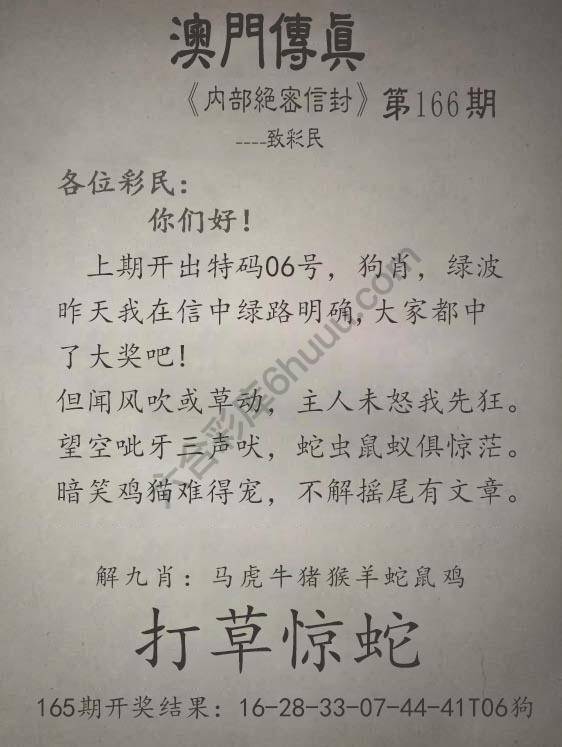 澳門傳眞
《内部絕密信封》第166期
----致彩民
各位彩民：
你们好！
上期开出特码06号，狗肖，绿波
昨天我在信中绿路明确，大家都中
了大奖吧！
但闻风吹或草动，主人未怒我先狂。
望空呲牙三声吠，蛇虫鼠蚁俱惊茫。
暗笑鸡猫难得宠，不解摇尾有文章。
解九肖：马虎牛猪猴羊蛇鼠鸡
打草惊蛇
165期开奖结果：16-28-33-07-44-41T06狗
六合彩库6huuu.com